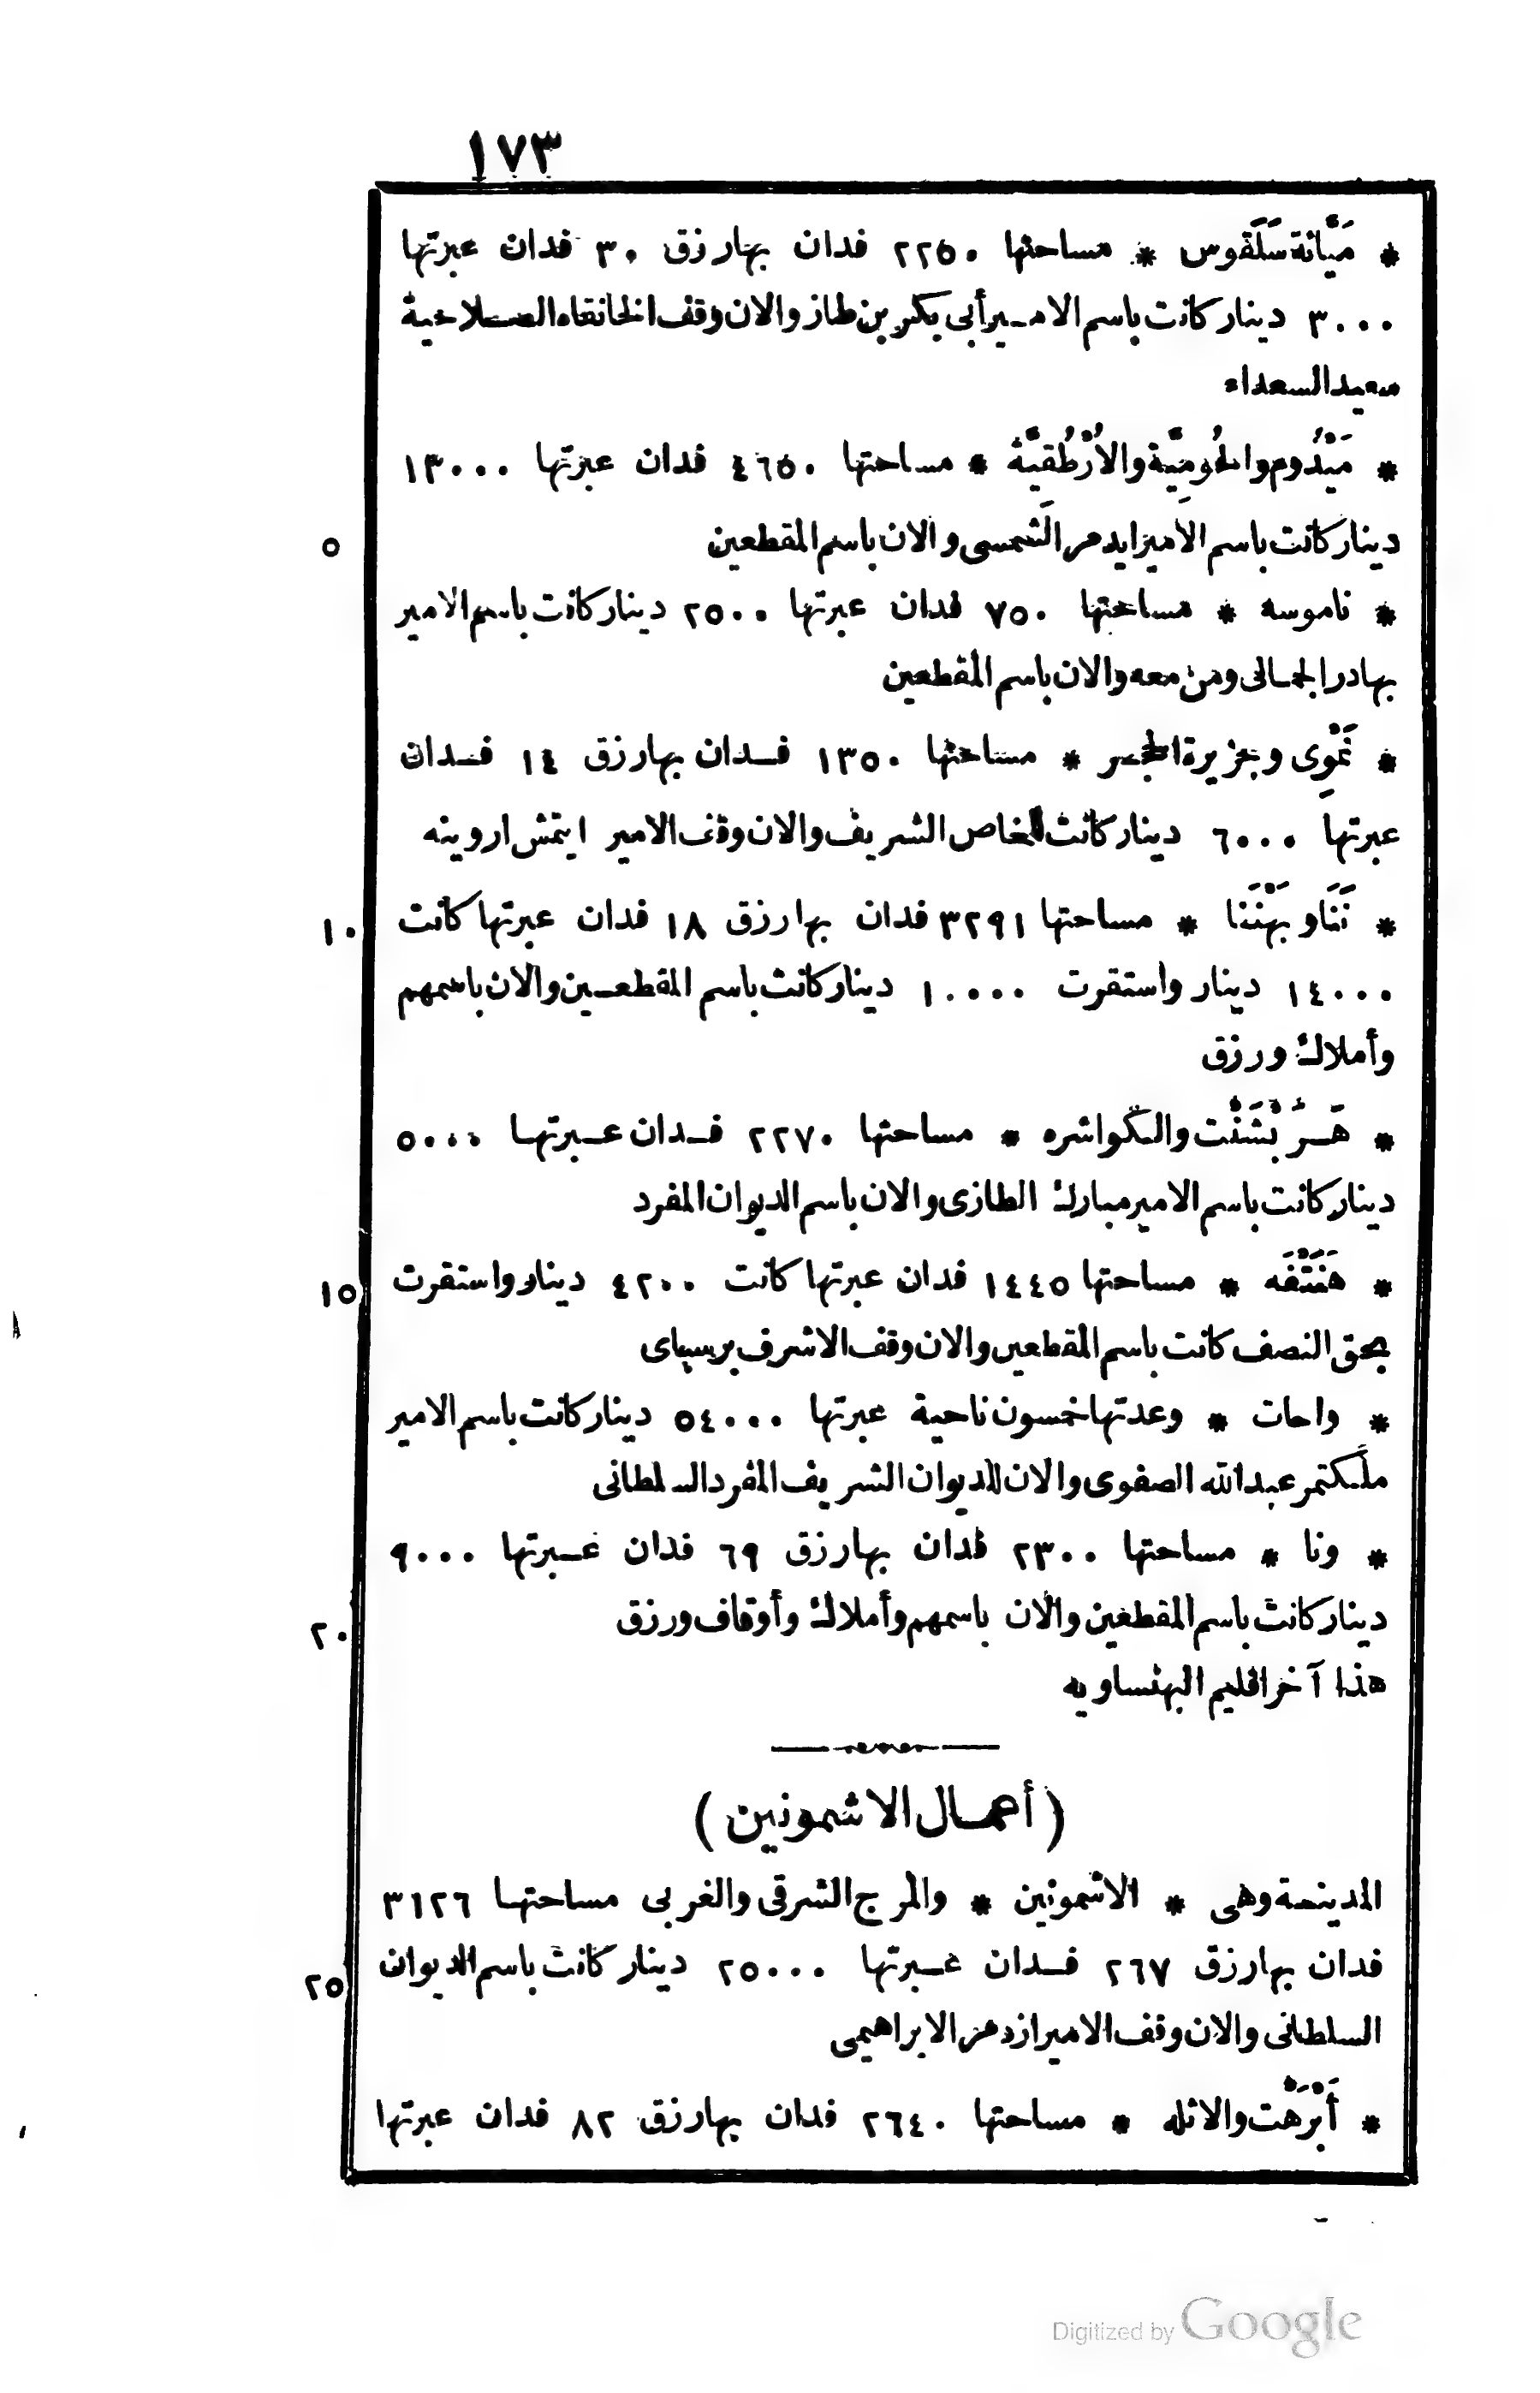 ١٧٣
* مَيَّانة سَلَقوس * مساحتها ٢٢٥٠ فدان بها رزق ٣٠ فدان عبرتها
٣٠٠٠ دينار كانت باسم الامير أبى بكر بن طاز والان وقف الخانقاه الصلاحية
سعيد السعداء
* مَيْدُوم والحُومِيَّة والاُرْطُقيَّة * مساحتها ٤٦٥٠ فدان عبرتها ١٣٠٠٠
دينار كانت باسم الامير ايدمر الشَمسى والان باسم المقطعين
٥
* ناموسه * مساحتها ٧٥٠ فدان عبرتها ٢٥٠٠ دينار كانت باسم الامير
بهادر الجمالى ومن معه والان باسم المقطعين
* نَمْوِى وجزيرة الحجر * مساحتها ١٣٥٠ فدان بها رزق ١٤ فدان
عبرتها ٦٠٠٠ دينار كانت للخاص الشريف والان وقف الامير ايتمش اروينه
* نَنَا وبَهْنَنا * مساحتها ٣٢٩١ فدان بها رزق ١٨ فدان عبرتها كانت
١٠
١٤٠٠٠ دينار واستقرت ١٠٠٠٠ دينار كانت باسم المقطعين والان باسمهم
وأملاك ورزق
* هَرُبْشَنْت والكواشره * مساحتها ٢٢٧٠ فدان عبرتها ٥٠٠٠
دينار كانت باسم الامير مبارك الطازى والان باسم الديوان المفرد
* هَنَتْفَه * مساحتها ١٤٤٥ فدان عبرتها كانت ٤٢٠٠ دينار واستقرت
١٥
بحق النصف كانت باسم المقطعين والان وقف الاشرف برسباى
* واحات * وعدتها خمسون ناحية عبرتها ٥٤٠٠٠ دينار كانت باسم الامير
ملكتمر عبد الله الصفوى والان للديوان الشريف المفرد السلطانى
* ونا * مساحتها ٢٣٠٠ فدان بها رزق ٦٩ فدان عبرتها ٩٠٠٠
دينار كانت باسم المقطعين والان باسمهم وأملاك وأوقاف ورزق
٢٠
هذا آخر اقليم البهنساويه
(أعمال الاشمونين)
المدينة وهى * الاشمونين * والمرج الشرقى والغربى مساحتها ٣١٢٦
فدان بها رزق ٢٦٧ فدان عبرتها ٢٥٠٠٠ دينار كانت باسم الديوان
٢٥
السلطانى والان وقف الامير ازدمر الابراهيمى
* أَبْرَهْت والاثله * مساحتها ٢٦٤٠ فدان بها رزق ٨٢ فدان عبرتها
Digitized by Google